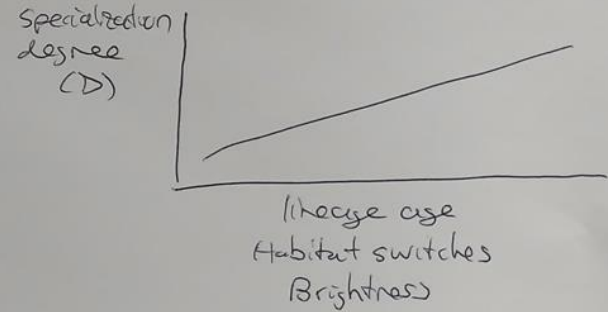 specialization
degree
(D)
lineage age
Habitat switches
Brightness